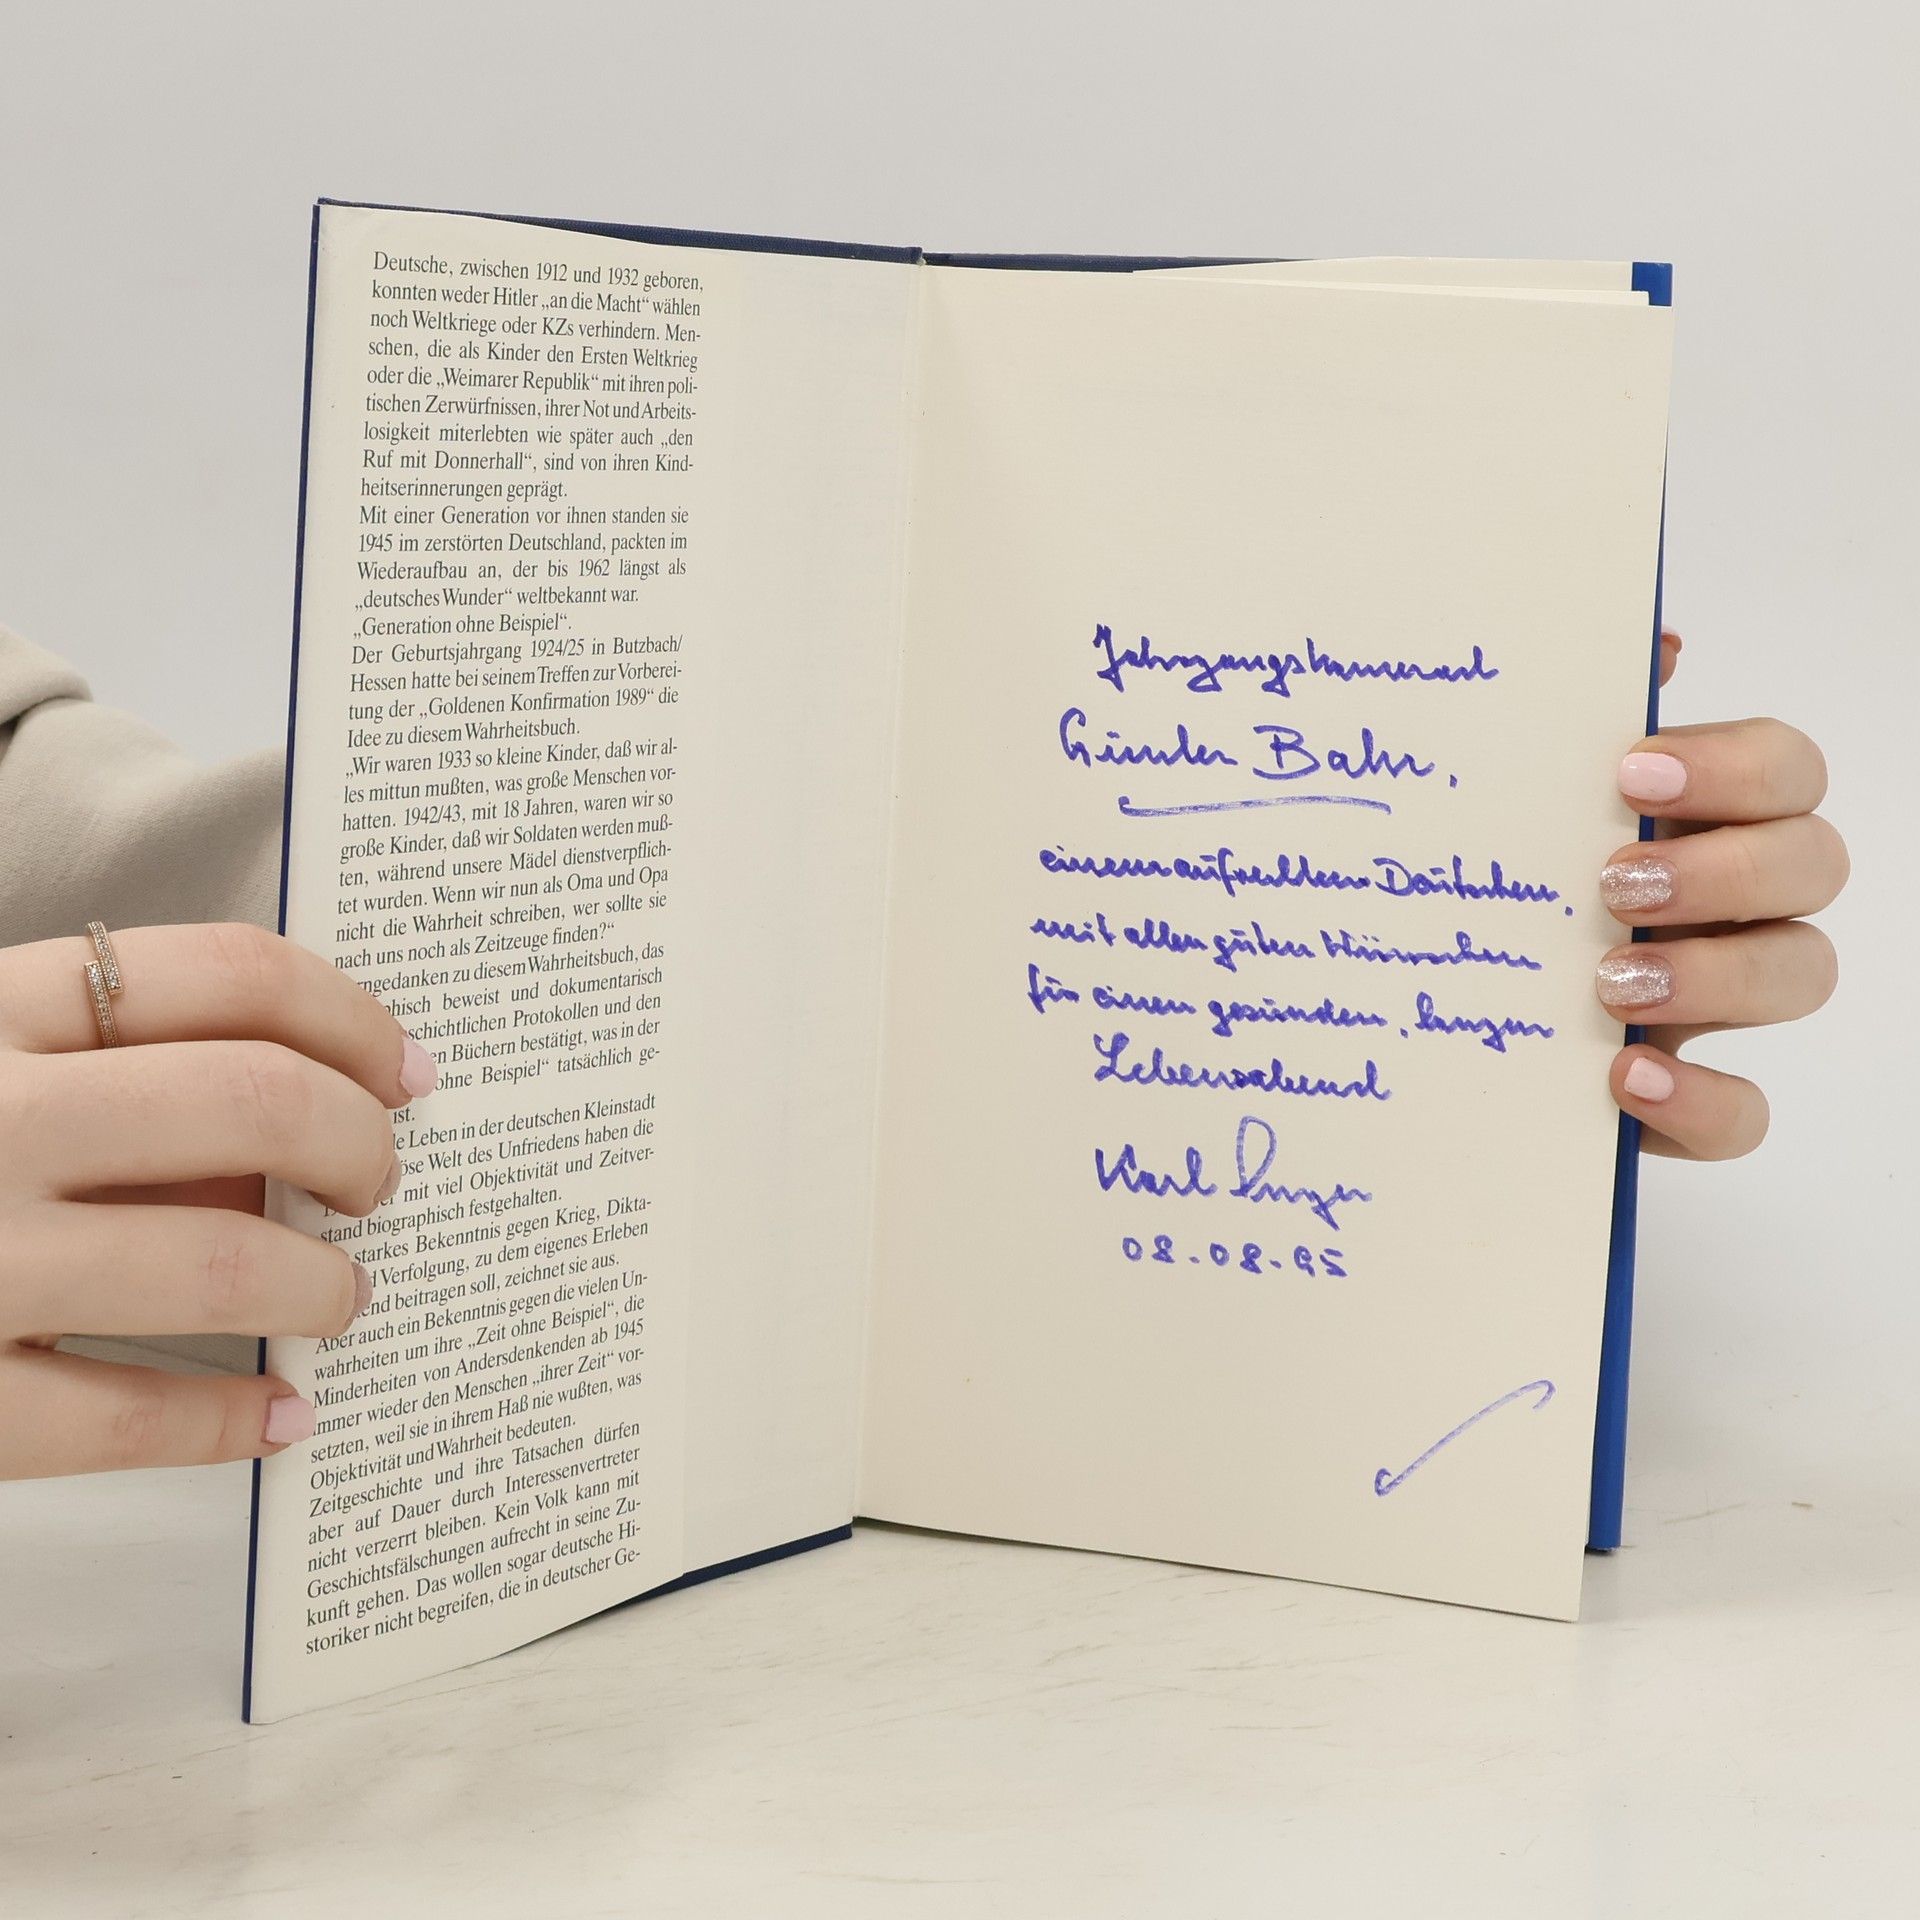 Deutsche, zwischen 1912 und 1932 geboren,
konnten weder Hitler „an die Macht“ wählen
noch Weltkriege oder KZs verhindern. Men-
schen, die als Kinder den Ersten Weltkrieg
oder die „Weimarer Republik“ mit ihren poli-
tischen Zerwürfnissen, ihrer Not und Arbeits-
losigkeit miterlebten wie später auch „den
Ruf mit Donnerhall“, sind von ihren Kind-
heitserinnerungen geprägt.
Mit einer Generation vor ihnen standen sie
1945 im zerstörten Deutschland, packten im
Wiederaufbau an, der bis 1962 längst als
„deutsches Wunder“ weltbekannt war.
„Generation ohne Beispiel“.
Der Geburtsjahrgang 1924/25 in Butzbach/
Hessen hatte bei seinem Treffen zur Vorberei-
tung der „Goldenen Konfirmation 1989“ die
Idee zu diesem Wahrheitsbuch.
„Wir waren 1933 so kleine Kinder, daß wir al-
les mittun mußten, was große Menschen vor-
hatten. 1942/43, mit 18 Jahren, waren wir so
große Kinder, daß wir Soldaten werden muß-
ten, während unsere Mädel dienstverpflich-
tet wurden. Wenn wir nun als Oma und Opa
nicht die Wahrheit schreiben, wer sollte sie
nach uns noch als Zeitzeuge finden?“
ngedanken zu diesem Wahrheitsbuch, das
phisch beweist und dokumentarisch
schichtlichen Protokollen und den
en Büchern bestätigt, was in der
ohne Beispiel“ tatsächlich ge-
ist.
le Leben in der deutschen Kleinstadt
öse Welt des Unfriedens haben die
mit viel Objektivität und Zeitver-
stand biographisch festgehalten.
starkes Bekenntnis gegen Krieg, Dikta-
d Verfolgung, zu dem eigenes Erleben
end beitragen soll, zeichnet sie aus.
Aber auch ein Bekenntnis gegen die vielen Un-
wahrheiten um ihre „Zeit ohne Beispiel“, die
Minderheiten von Andersdenkenden ab 1945
immer wieder den Menschen „ihrer Zeit“ vor-
setzten, weil sie in ihrem Haß nie wußten, was
Objektivität und Wahrheit bedeuten.
Zeitgeschichte und ihre Tatsachen dürfen
aber auf Dauer durch Interessenvertreter
nicht verzerrt bleiben. Kein Volk kann mit
Geschichtsfälschungen aufrecht in seine Zu-
kunft gehen. Das wollen sogar deutsche Hi-
storiker nicht begreifen, die in deutscher Ge-
Jahrgangskamerad
Günter Bahr,
einem aufrechten Deutschen,
mit allen guten Wünschen
für einen gesunden, langen
Lebensabend
Karl
08.08.95